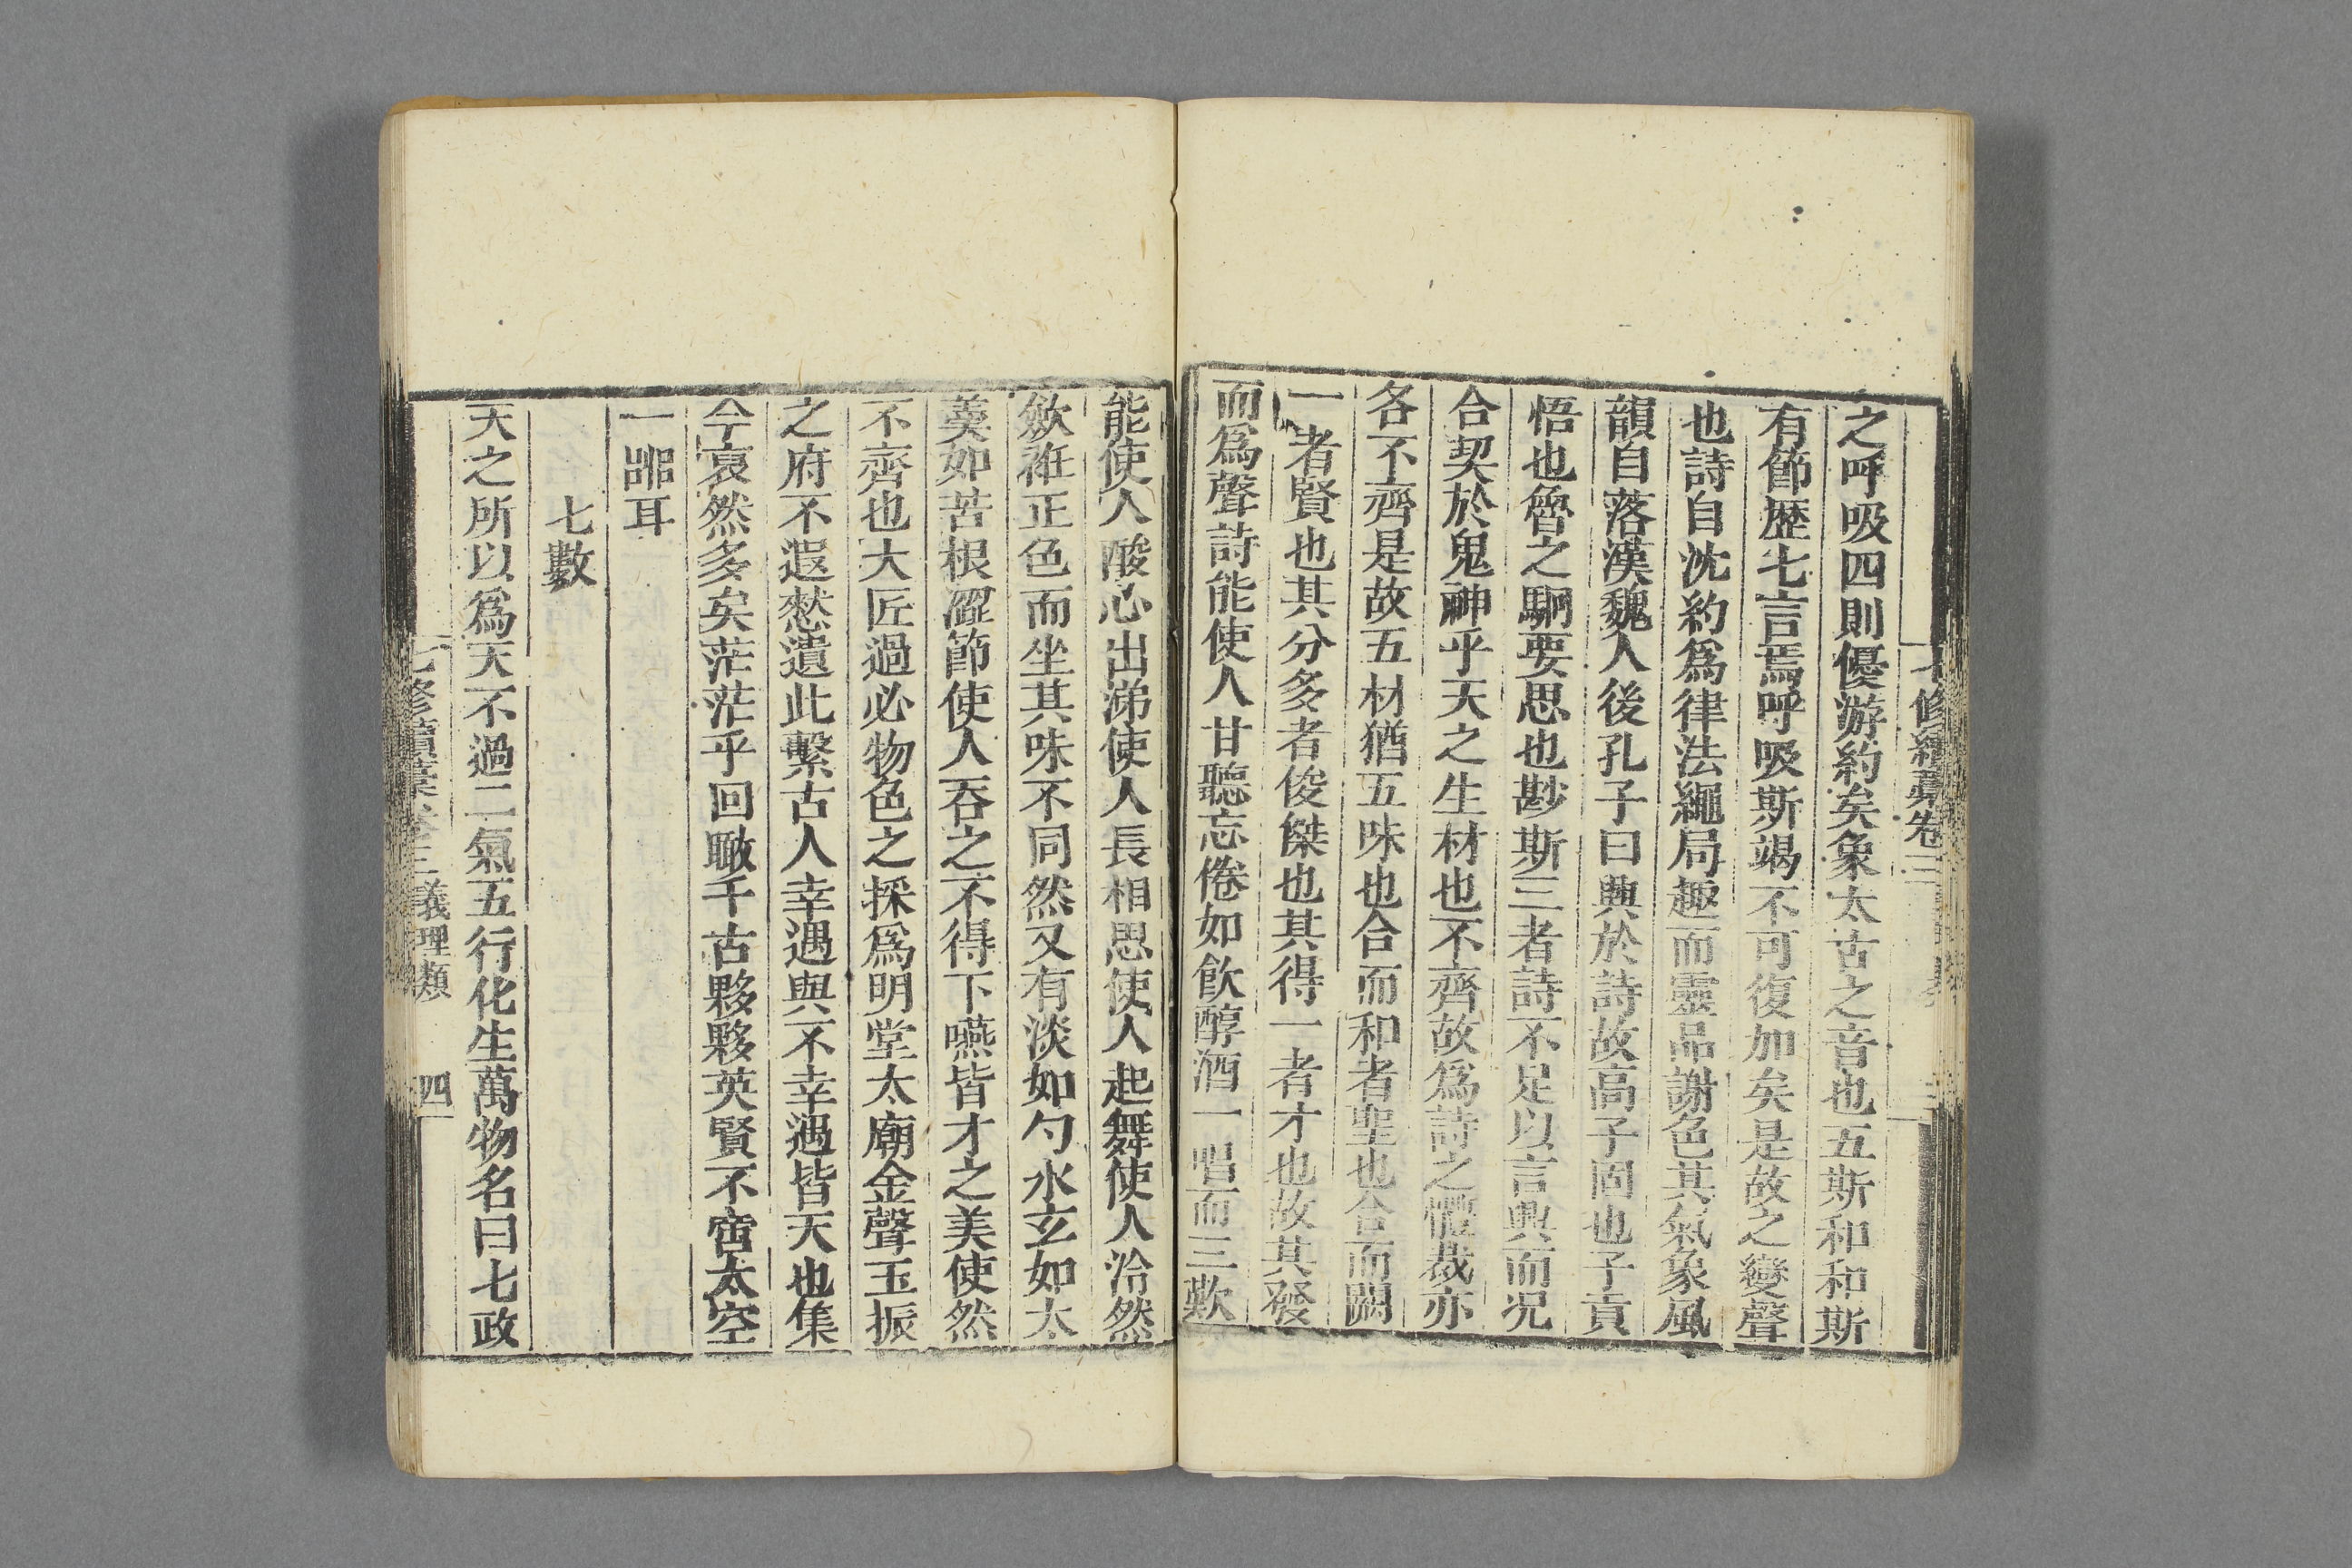 七修續稾卷三
之呼吸四則優游約矣象太古之音也五斯和和斯
有節歷七言焉呼吸斯竭不可復加矣是故之變聲
也詩自沈約爲律法繩局趣而靈品謝色其氣象風
韻自落漢魏人後孔子曰興於詩故高子固也子貢
悟也魯之駉要思也尠斯三者詩不足以言興而況
合契於鬼神乎天之生材也不齊故爲詩之體裁亦
各不齊是故五材猶五味也合而和者聖也合而闕
一者賢也其分多者俊傑也其得一者才也故其發
而爲聲詩能使人甘聽忘倦如飲醇酒一唱而三歎
能使人酸心出涕使人長相思使人起舞使人泠然
斂袵正色而坐其味不同然又有淡如勺水玄如太
羹如苦根澀節使人吞之不得下嚥皆才之美使然
不齊也大匠過必物色之採爲明堂太廟金聲玉振
之府不遐愁遺此繫古人幸遇與不幸遇皆天也集
今裒然多矣茫茫乎回瞰千古夥夥英賢不啻太空
一噐耳
七數
天之所以爲天不過二氣五行化生萬物名曰七政
七修續稾卷三義理類 四